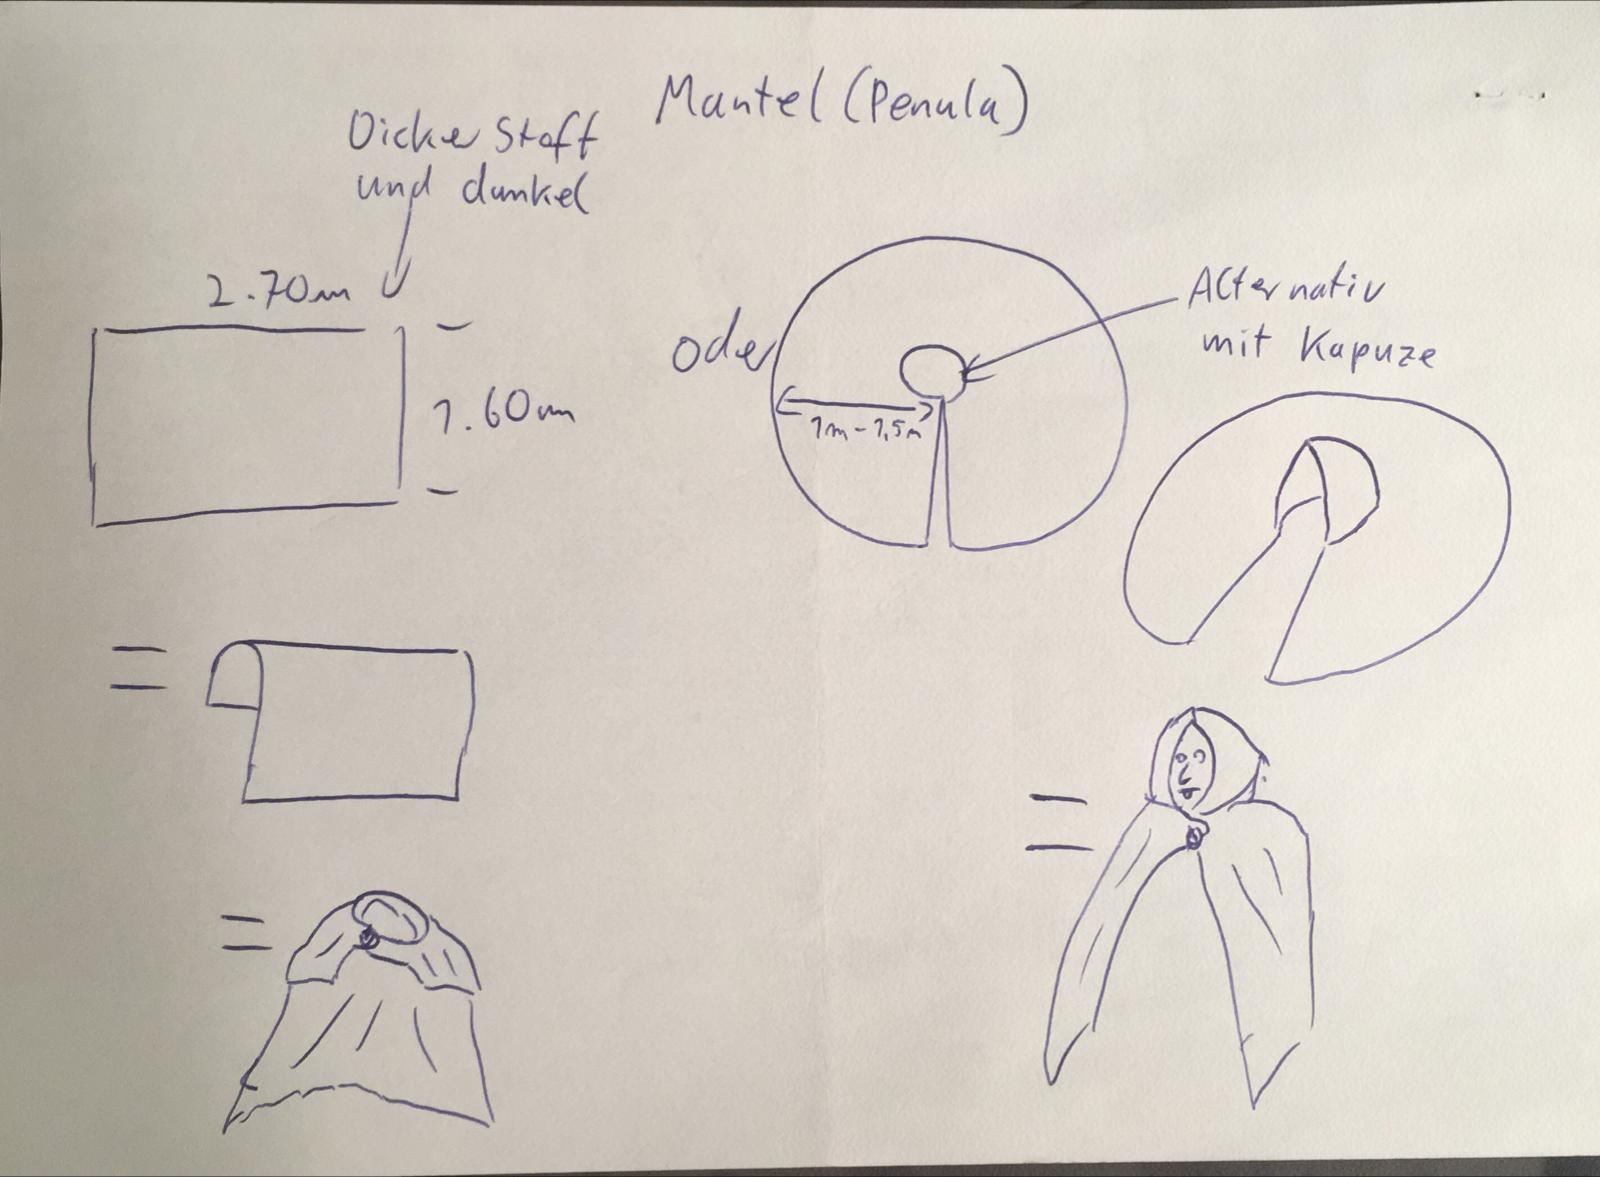 Mantel (Penula)
Dicker Stoff
und dunkel
2.70m
1.60m
oder
1m-1,5m
Alternativ
mit Kapuze